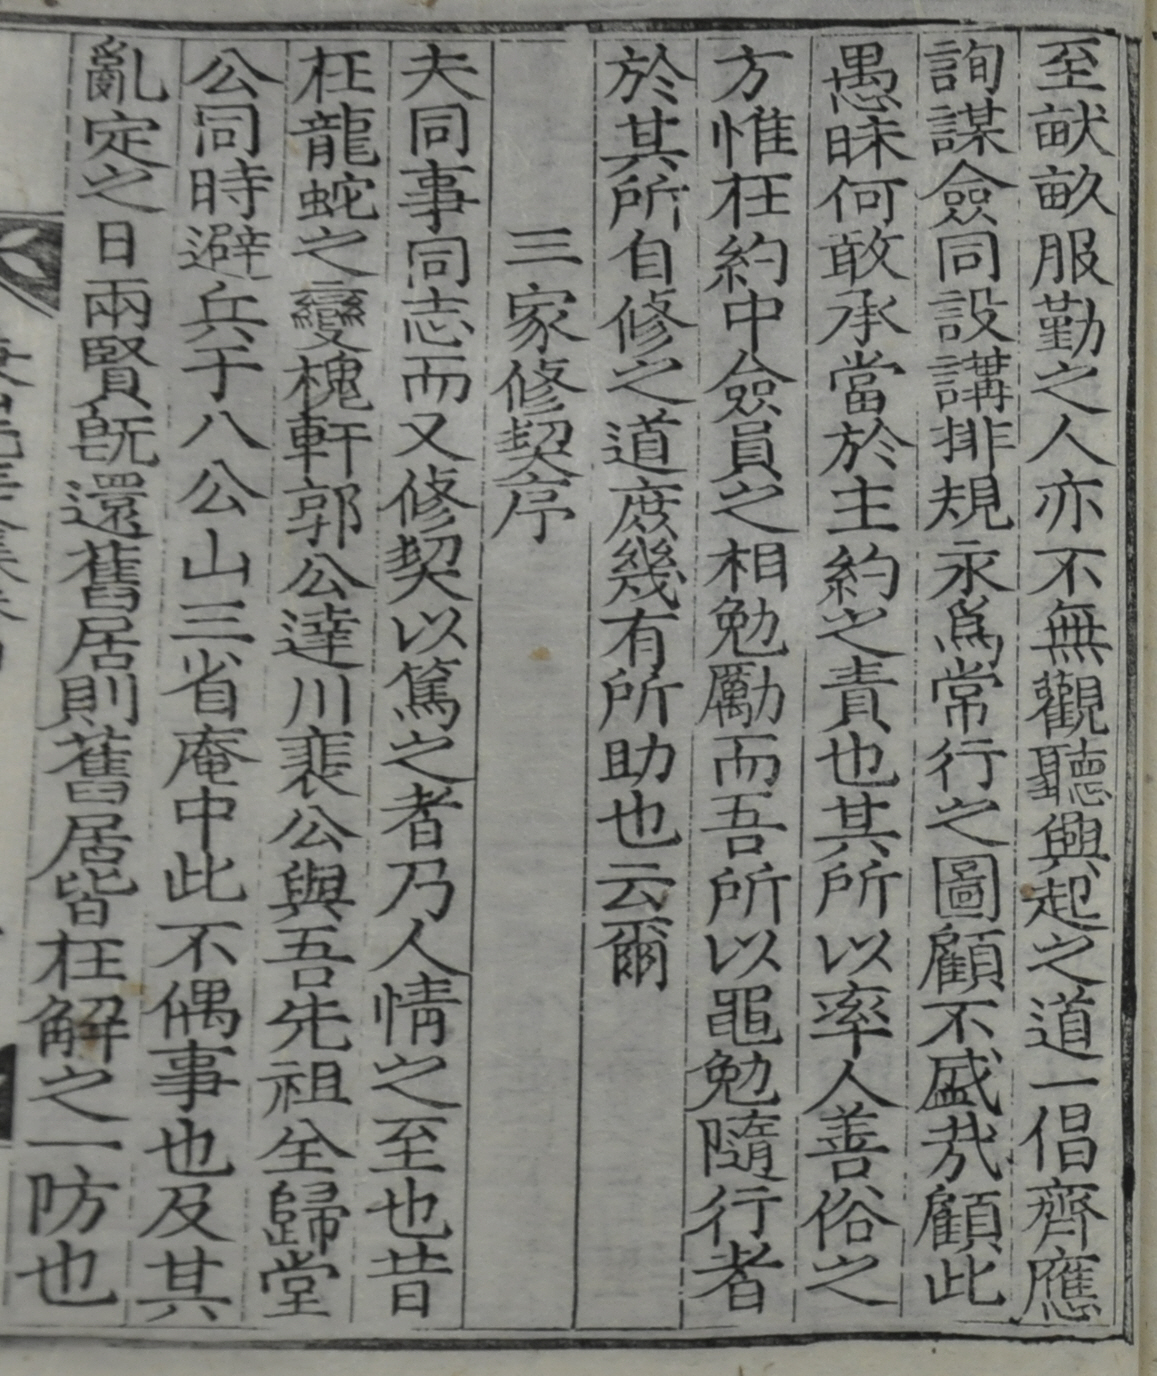 至畎畝服勤之人亦不無觀聽興起之道一倡齊應
詢謀僉同設講排規永爲常行之圖顧不盛㢤顧此
愚昧何敢承當於主約之責也其所以率人善俗之
方惟在約中僉員之相勉勵而吾所以黽勉隨行者
於其所自修之道庶幾有所助也云爾
三家修契序
夫同事同志而又修契以篤之者乃人情之至也昔
在龍蛇之變槐軒郭公達川裴公與吾先祖全歸堂
公同時避兵于八公山三省庵中此不偶事也及其
亂定之日兩賢旣還舊居則舊居皆在解之一防也